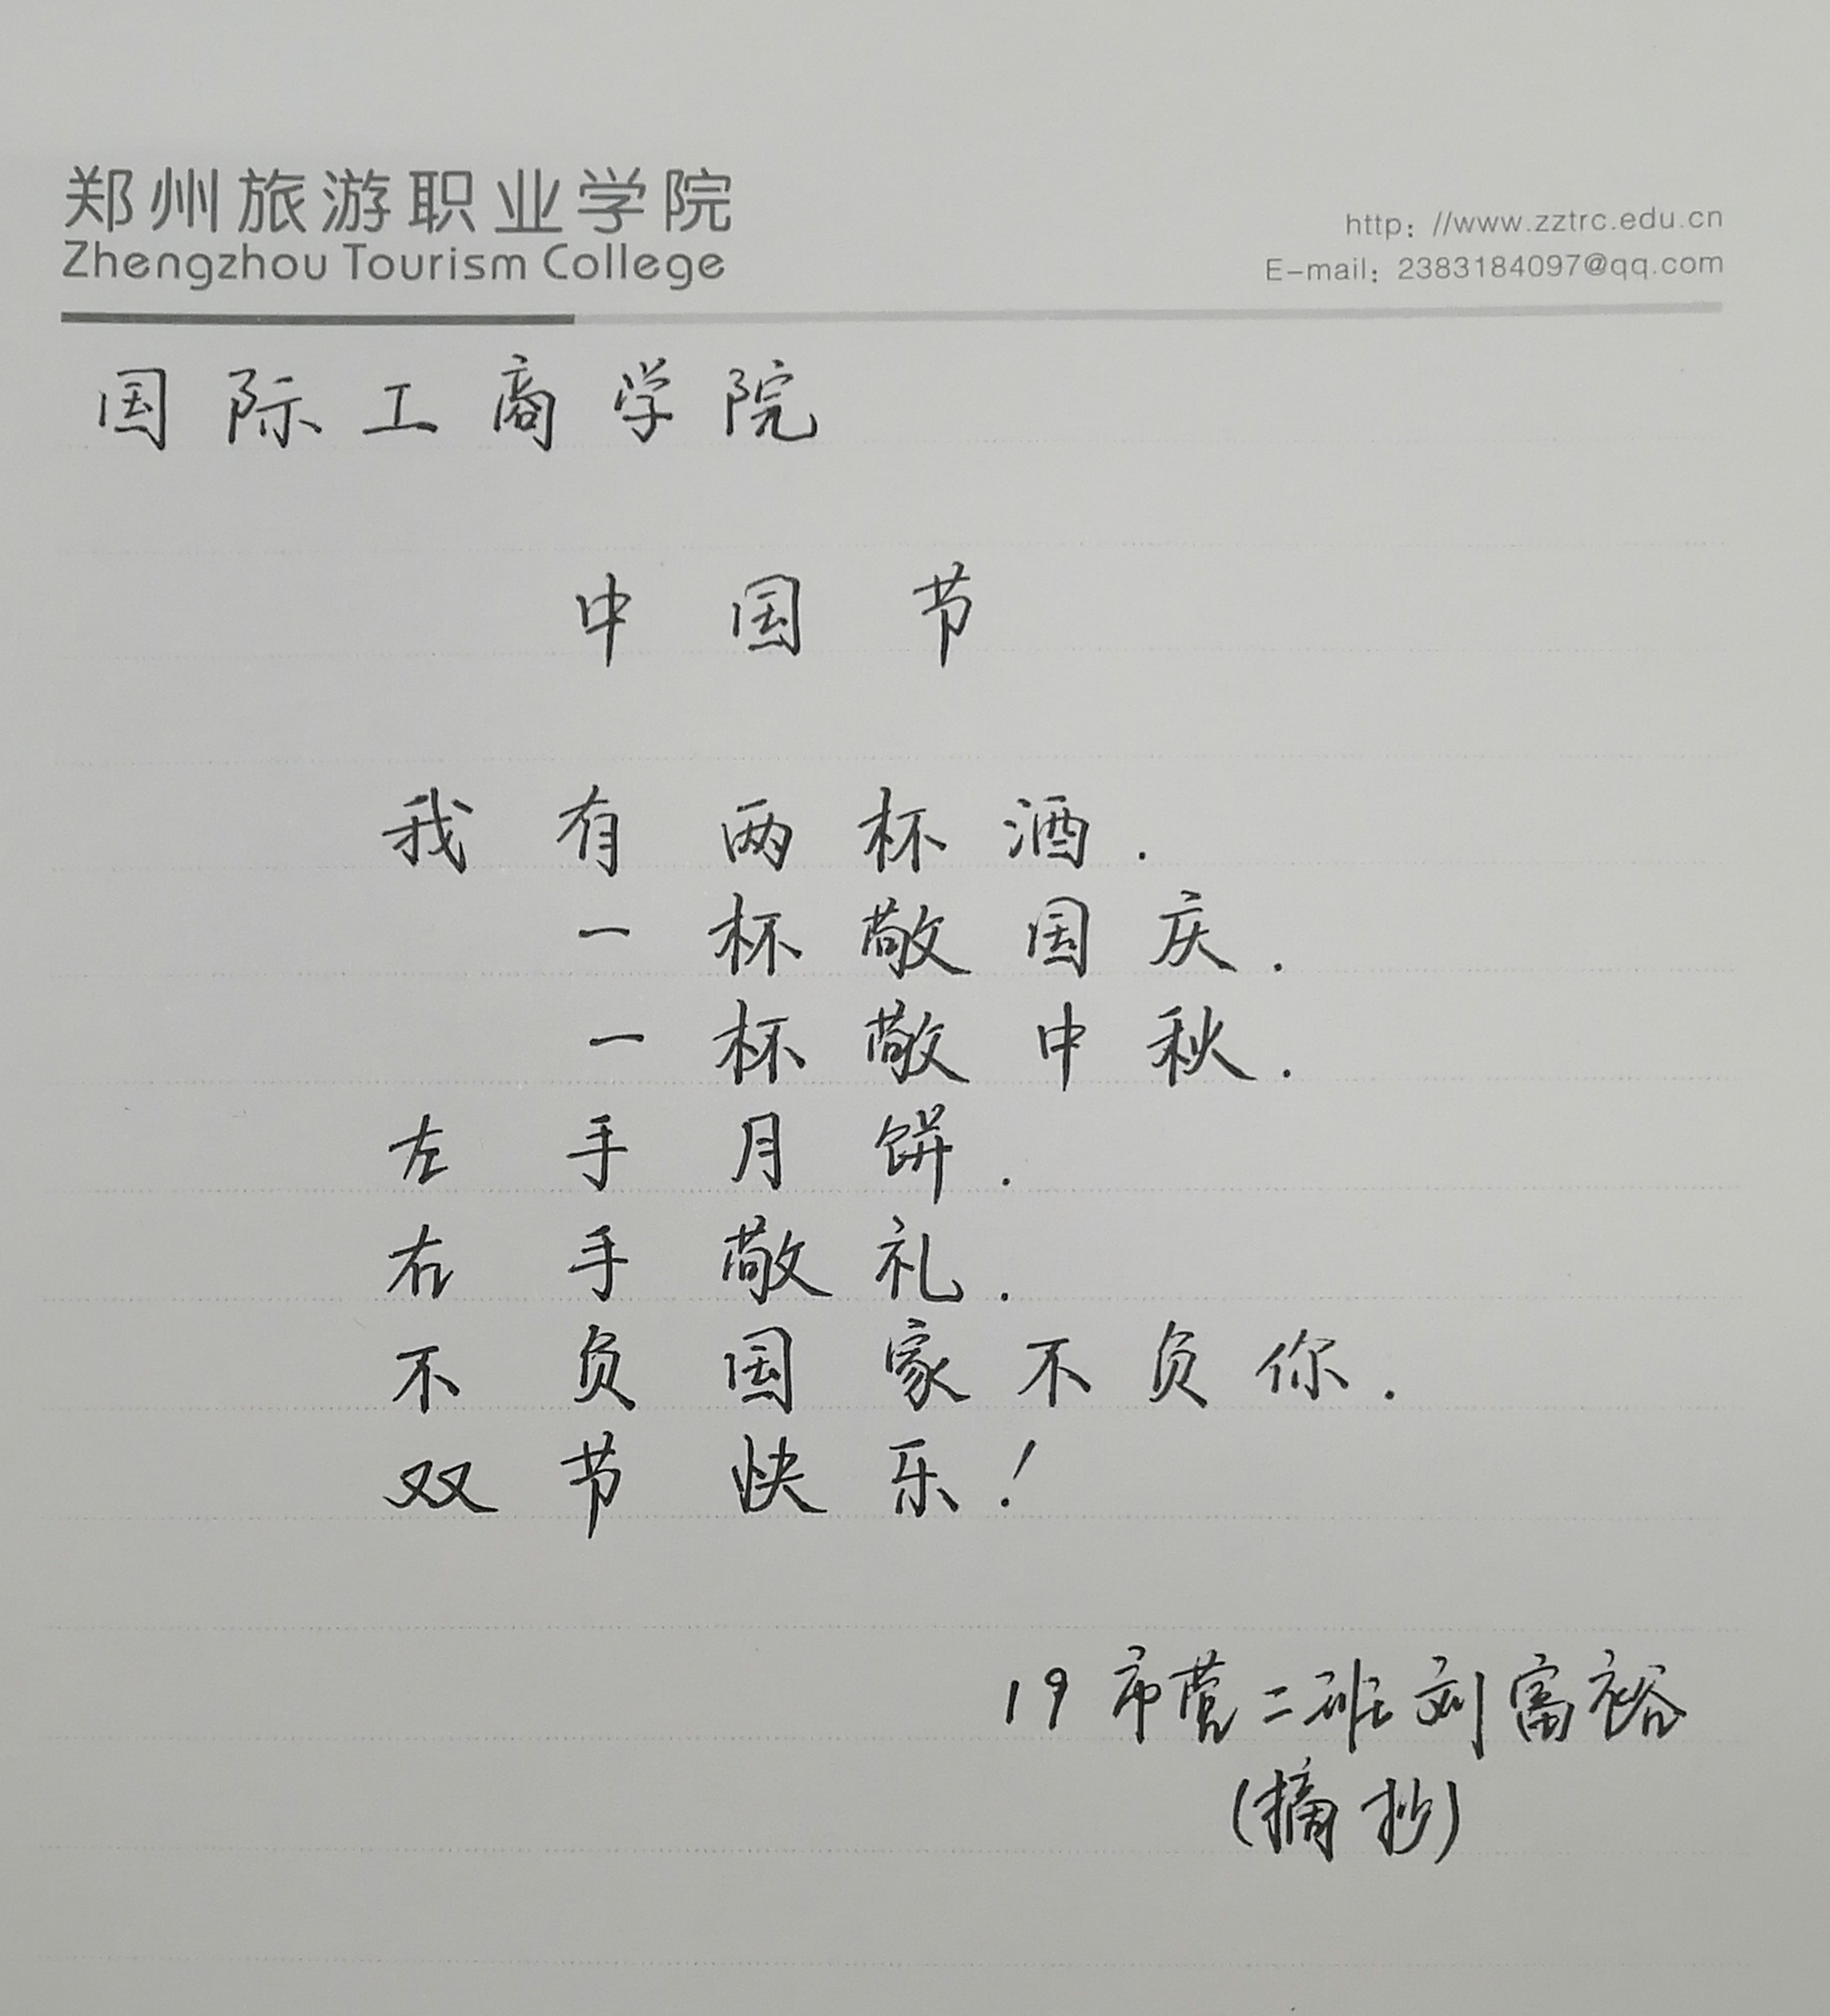 郑州旅游职业学院
Zhengzhou Tourism College
http: //www.zztrc.edu.cn
E-mail: 2383184097@qq.com
国际工商学院
中国节
我有两杯酒.
一杯敬国庆.
一杯敬中秋.
左手月饼.
右手敬礼.
不负国家不负你.
双节快乐!
19市营二班刘富裕
(摘抄)